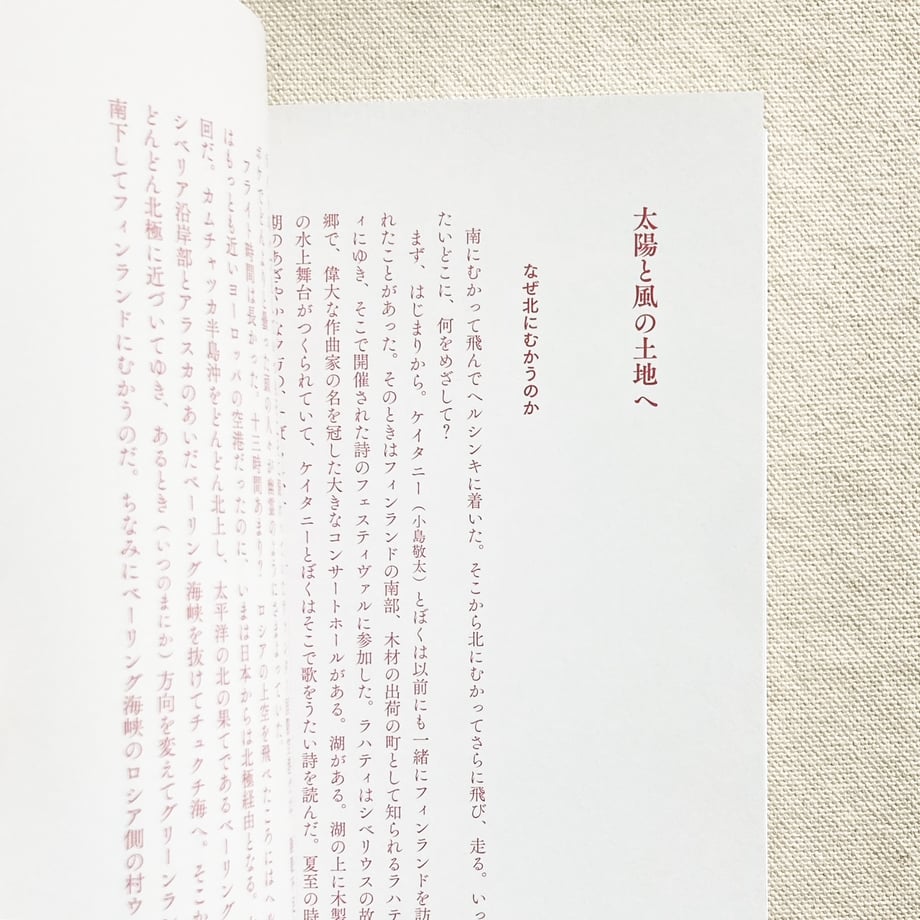 太陽と風の土地へ
なぜ北にむかうのか
南にむかって飛んでヘルシンキに着いた。そこから北にむかってさらに飛び、走る。いっ
たいどこに、何をめざして?
まず、はじまりから。ケイタニー(小島敬太)とぼくは以前にも一緒にフィンランドを訪
れたことがあった。そのときはフィンランドの南部、木材の出荷の町として知られるラハテ
ィにゆき、そこで開催された詩のフェスティヴァルに参加した。ラハティはシベリウスの故
郷で、偉大な作曲家の名を冠した大きなコンサートホールがある。湖がある。湖の上に木製
の水上舞台がつくられていて、ケイタニーとぼくはそこで歌をうたい詩を読んだ。夏至の時
湖のあざやかな
フライト時間は長かった。十三時間あまり? ロシアの上空を飛べたころにはヘル
はもっとも近いヨーロッパの空港だったのに、いまは日本からは北極経由となる。
回だ。カムチャッカ半島沖をどんどん北上し、太平洋の北の果てであるベーリング
シベリア沿岸部とアラスカのあいだベーリング海峡を抜けてチュクチ海へ。そこか
どんどん北極に近づいてゆき、あるとき(いつのまにか)方向を変えてグリーンラン
南下してフィンランドにむかうのだ。ちなみにベーリング海峡のロシア側の村ウ